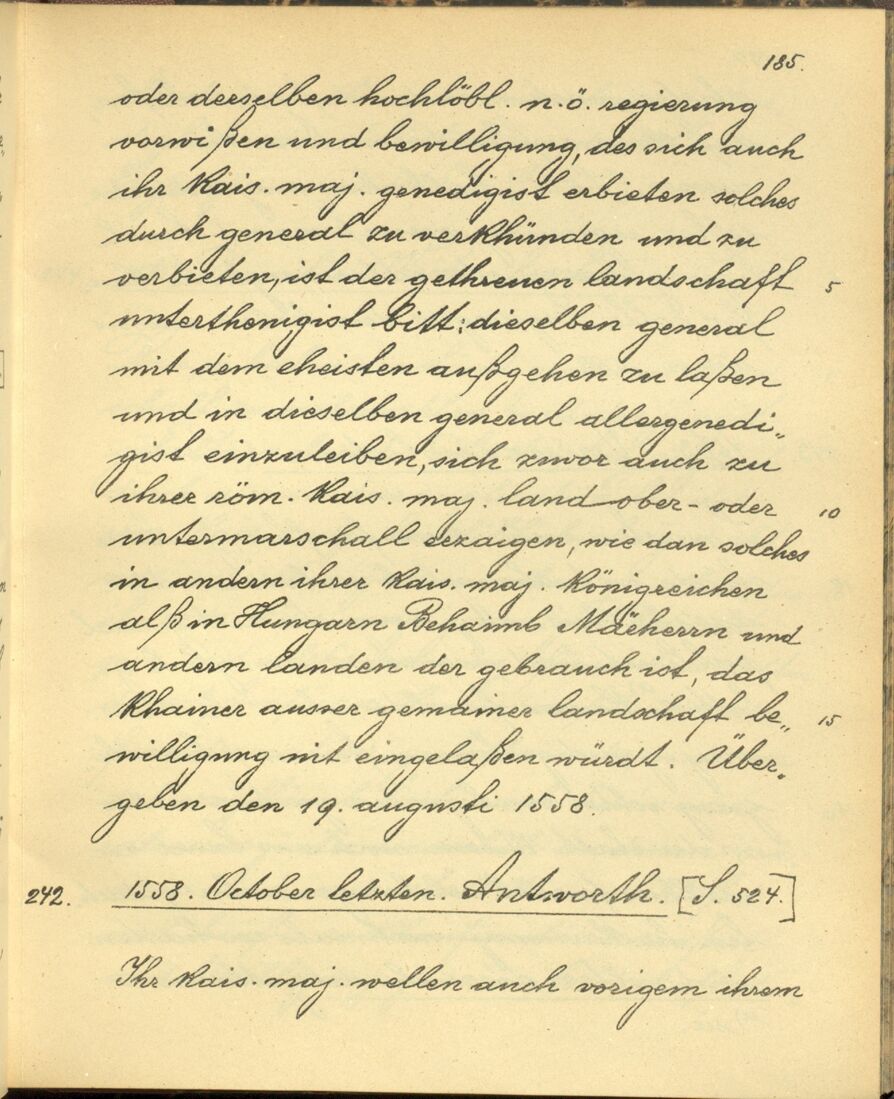 185.
oder derselben hochlöbl. n. ö. regierung
vorwißen und bewilligung, des sich auch
ihr kais. maj. genedigist erbieten solches
durch general zu verkhünden und zu
verbieten, ist der gethreuen landschaft 5
unterthenigist bitt: dieselben general
mit dem eheisten außgehen zu laßen
und in dieselben general allergenedi„
gist einzuleiben, sich zuvor auch zu
ihrer röm. kais. maj. land ober- oder 10
untermarschall erzaigen, wie dan solches
in andern ihrer kais. maj. königreichen
alß in Hungarn Behaimb Mäeherrn und
andern landen der gebrauch ist, das
khainer ausser gemainer landschaft be„ 15
willigung nit eingelaßen würdt. Über„
geben den 19. augusti 1558.
242. 1558. October letzten. Antworth. [S. 524.]
Ihr kais. maj. wellen auch vorigem ihrem